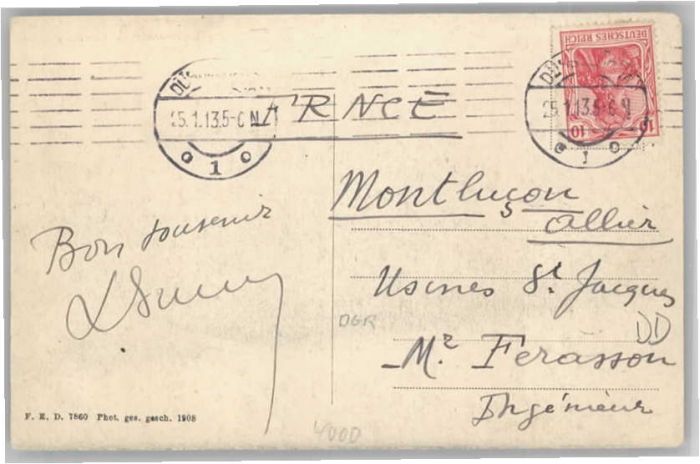 DEUTSCHES REICH
10 10
25.1.13.5-6 N
1
25.1.13.5-6 N
1
FRNCE
Montluçon
Allier
Bon souvenir
Usines St. Jacques
DGR
DD
Mr. Ferasson
Ingénieur
F. E. D. 7860 Phot. ges. gesch. 1908
4000